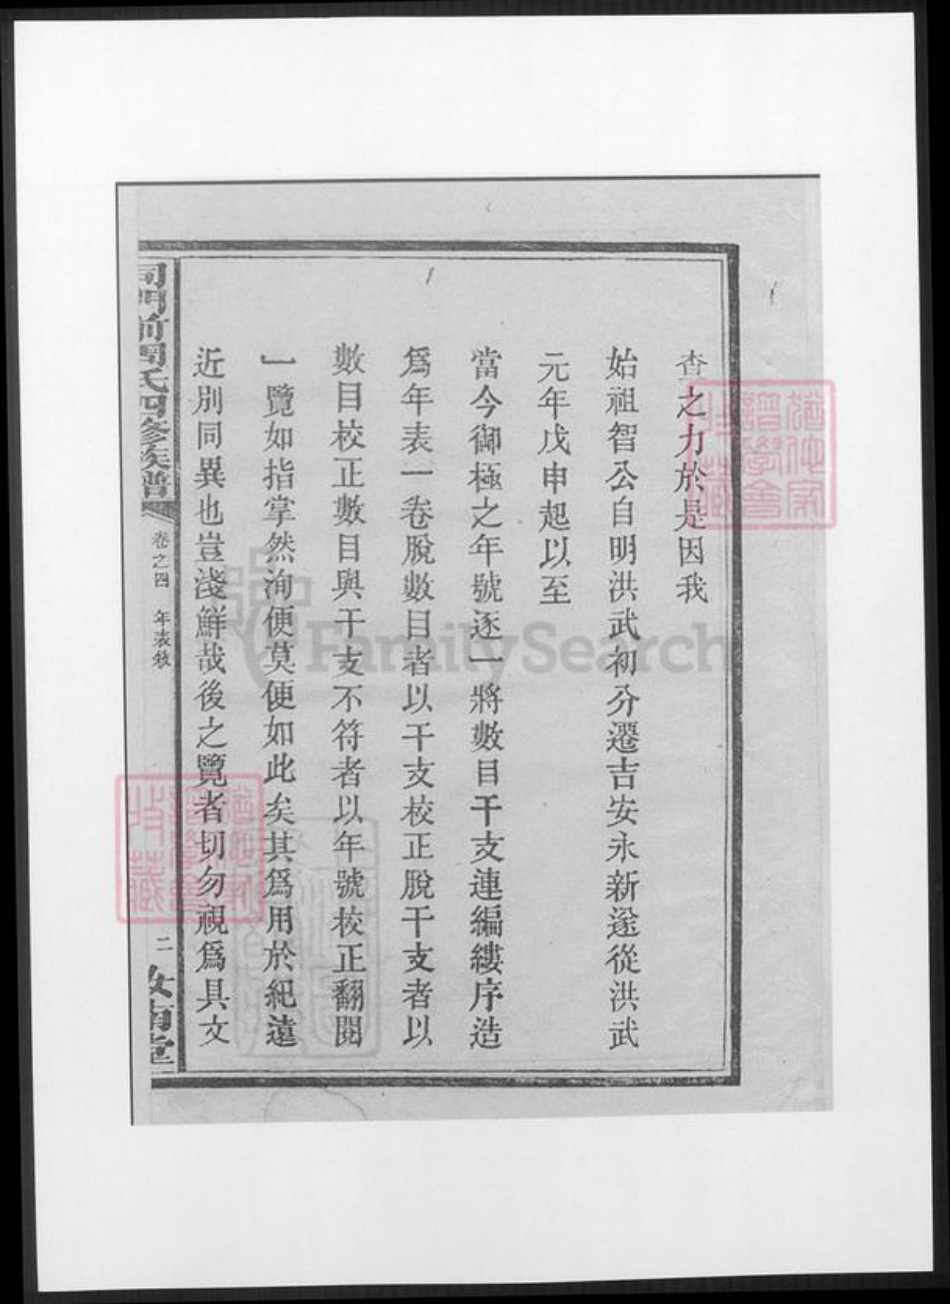 查之力於是因我
始祖智公自明洪武初分遷吉安永新遂從洪武
元年戊申起以至
當今御極之年號逐一將數目干支連編縷序造
爲年表一卷脫數目者以干支校正脫干支者以
數目校正數目與干支不符者以年號校正翻閱
一覽如指掌然洵便莫便如此矣其爲用於紀遠
近別同異也豈淺鮮哉後之覽者切勿視爲具文
門前周氏四修族譜
卷之四
年表敘
二
汝南堂
FamilySearch